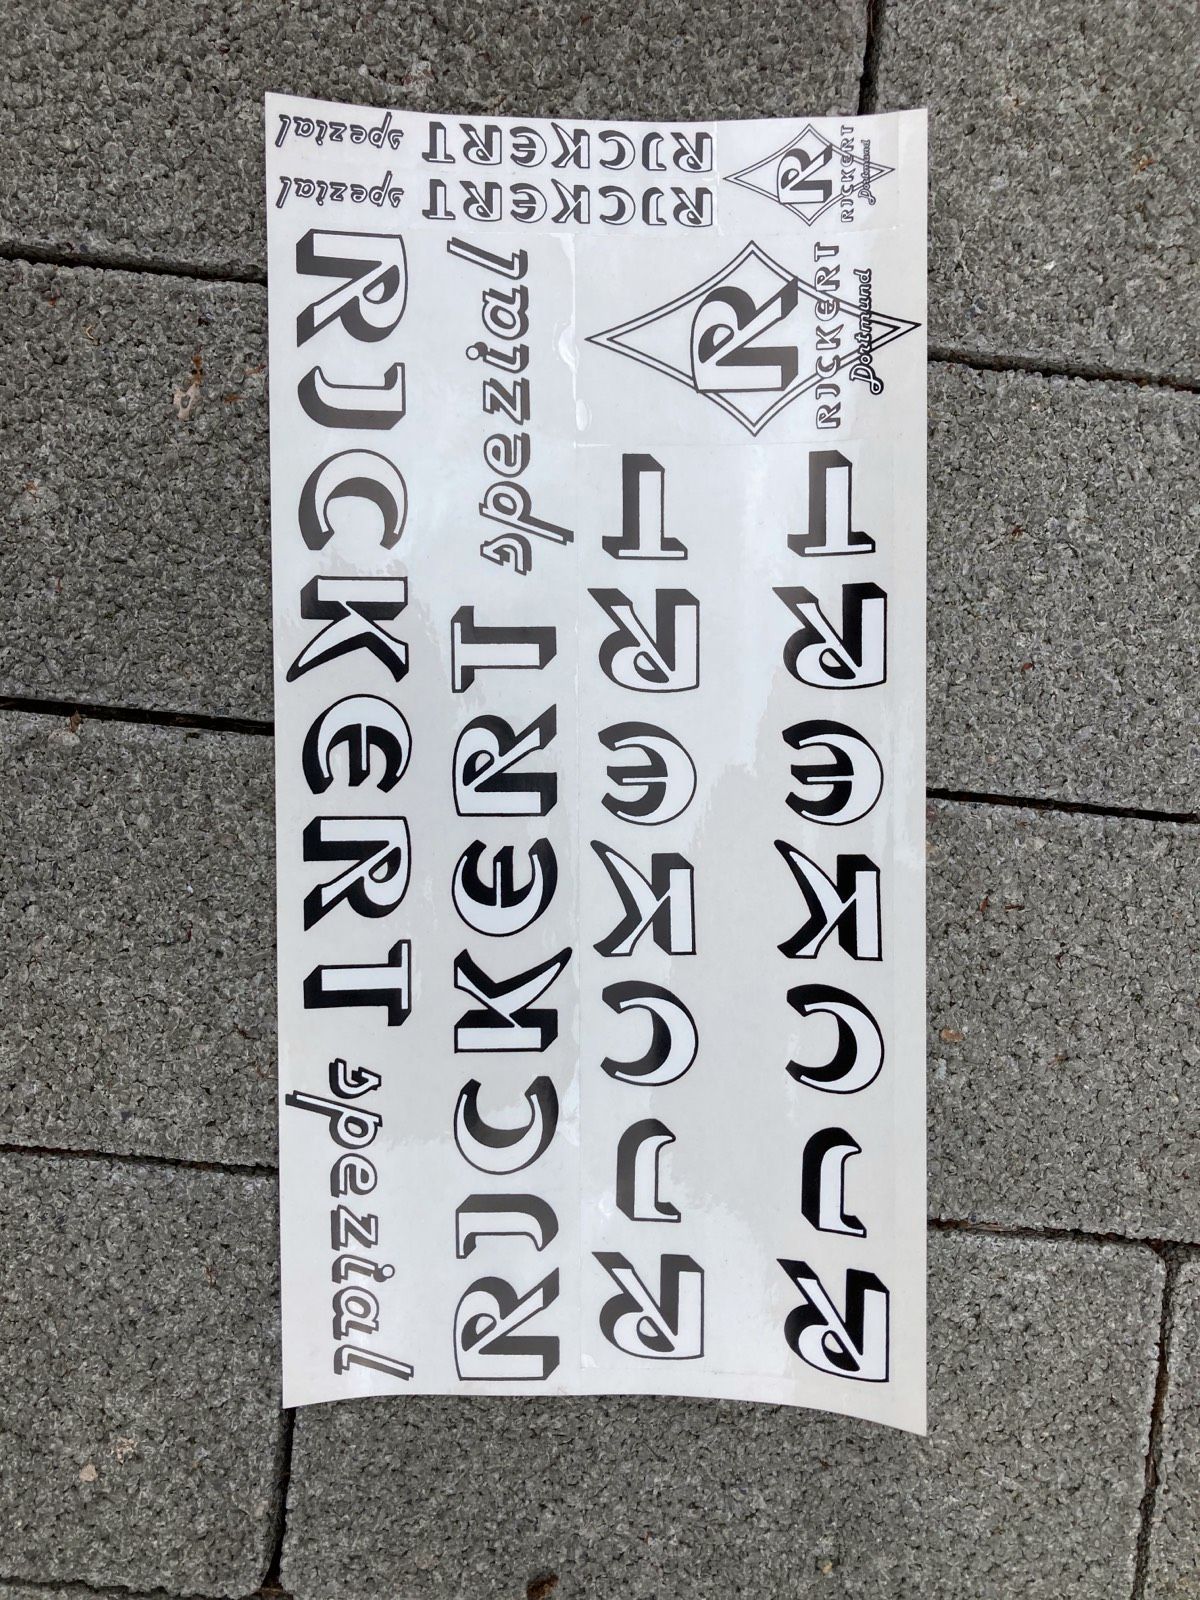 RICKERT spezial
RICKERT spezial
R
RICKERT
Dortmund
R
RICKERT
Dortmund
RICKERT spezial
RICKERT spezial
RICKERT
RICKERT